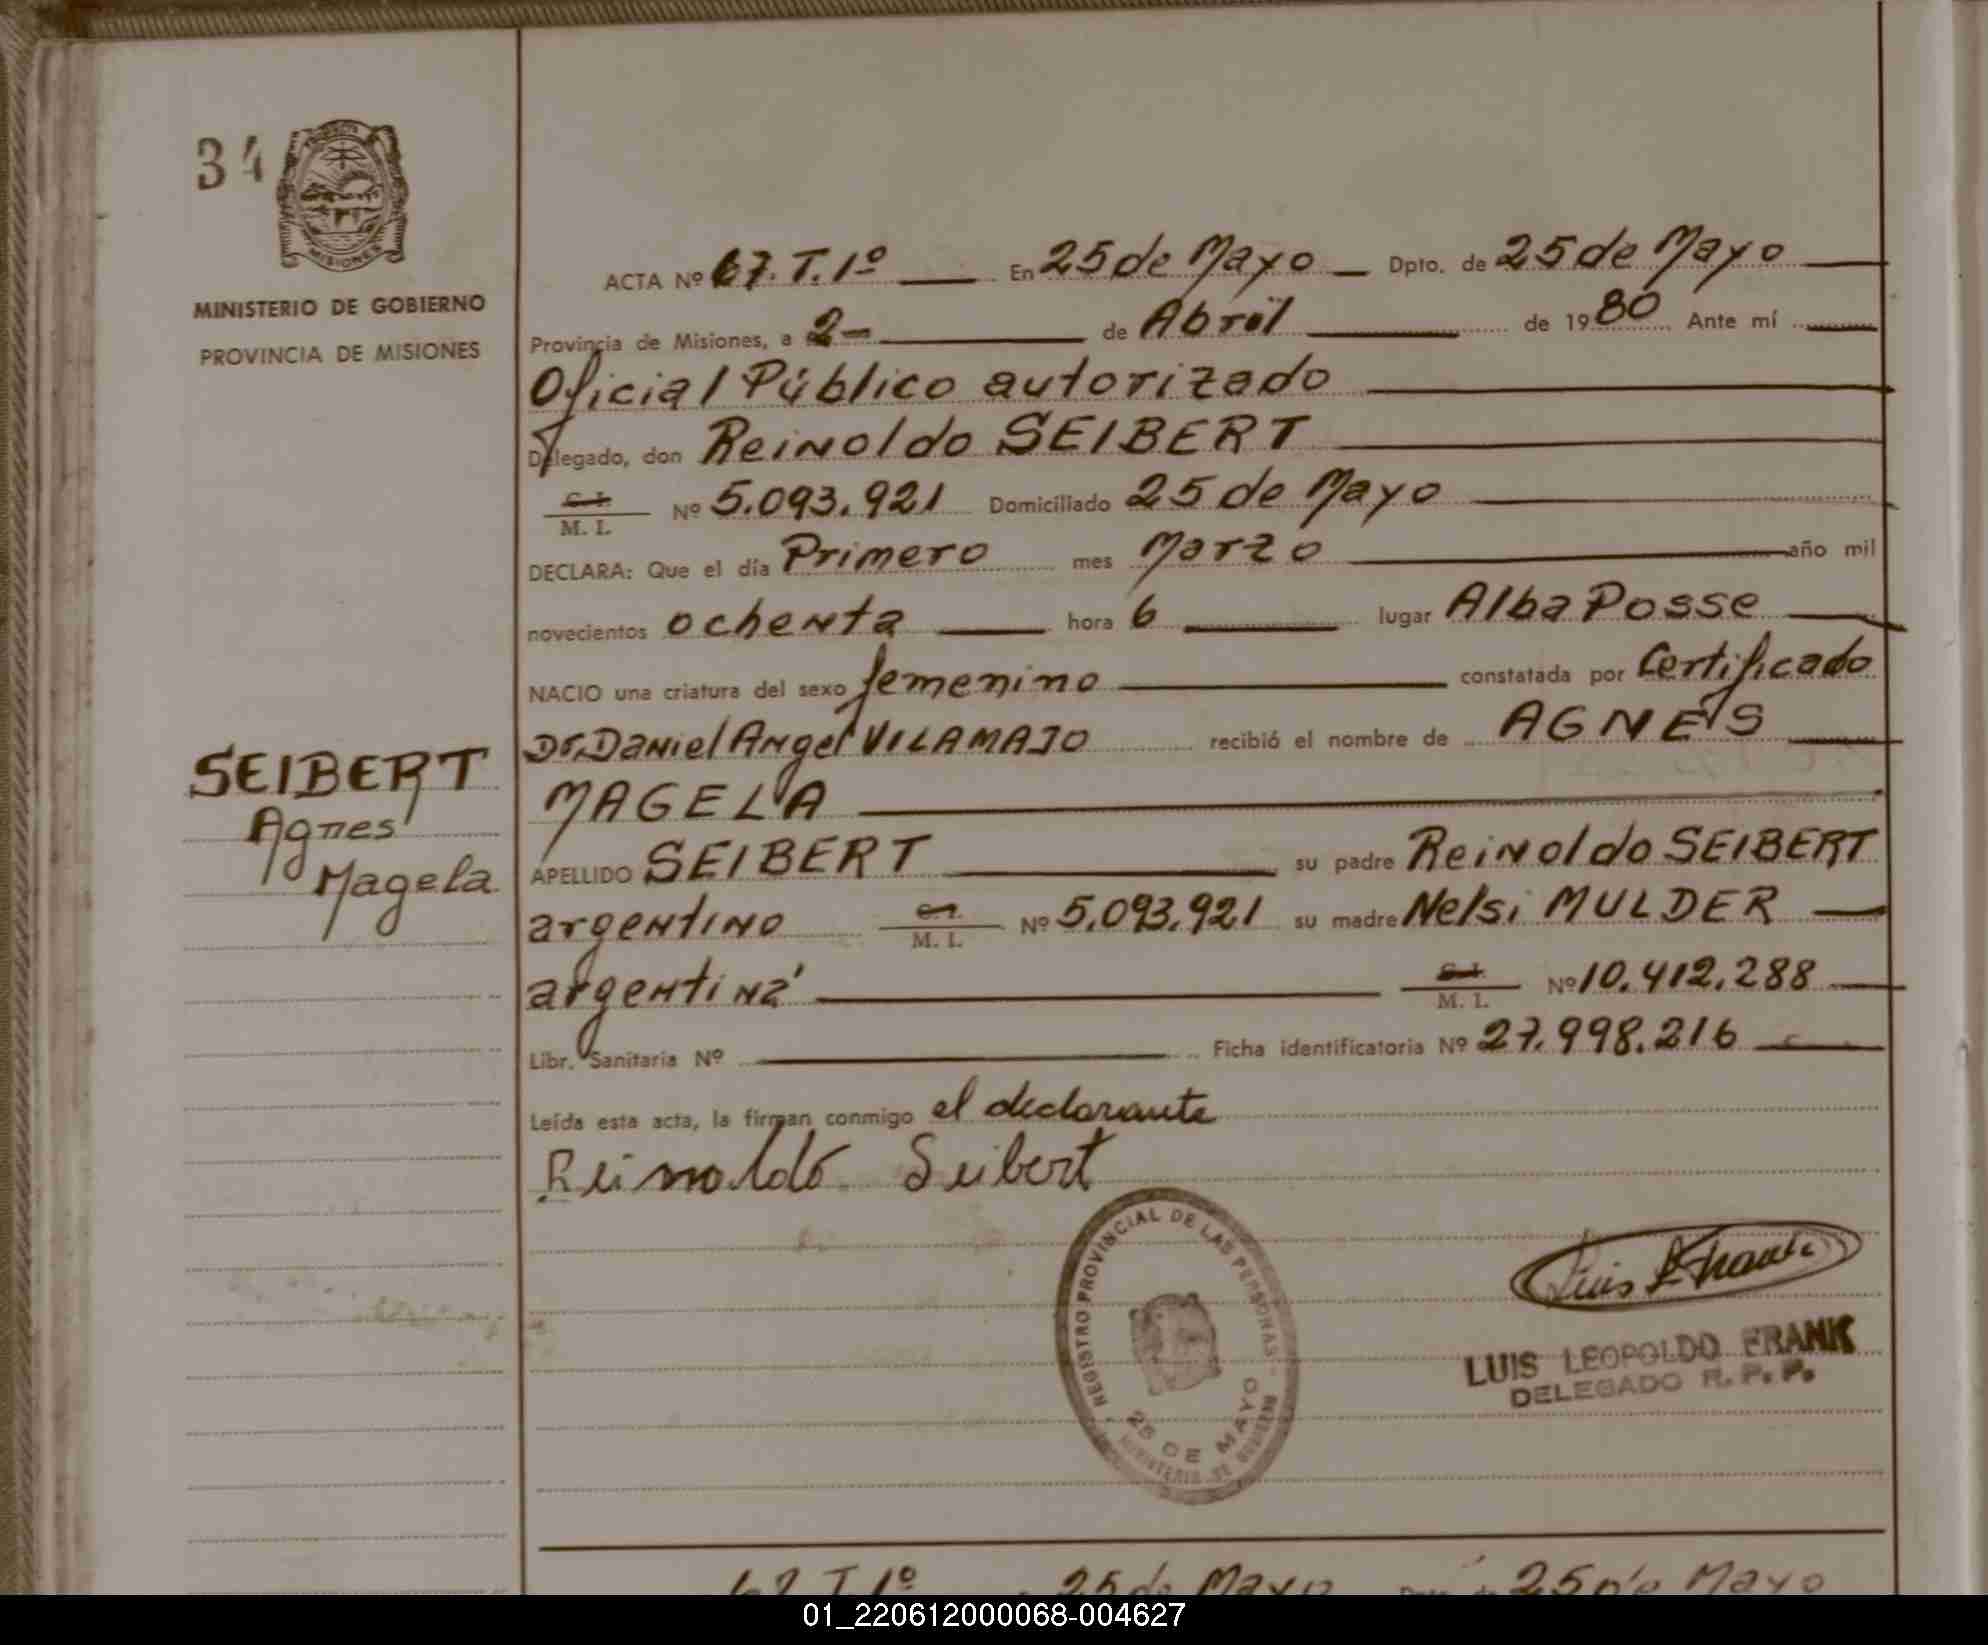 34
PROVINCIA
MISIONES
MINISTERIO DE GOBIERNO
PROVINCIA DE MISIONES
SEIBERT
Agnes
Magela
ACTA Nº 67. T. 1º En 25 de Mayo Dpto. de 25 de Mayo
Provincia de Misiones, a 2- de Abril de 1980 Ante mí
Oficial Público autorizado
Delegado, don Reinoldo SEIBERT
C. I. M. I. Nº 5.093.921 Domiciliado 25 de Mayo
DECLARA: Que el día Primero mes Marzo año mil
novecientos ochenta hora 6 lugar Alba Posse
NACIO una criatura del sexo femenino constatada por Certificado
Dr. Daniel Angel VILAMAJO recibió el nombre de AGNES
MAGELA
APELLIDO SEIBERT su padre Reinoldo SEIBERT
argentino C. I. M. I. Nº 5.093.921 su madre Nelsi MULDER
argentina C. I. M. I. Nº 10.412.288
Libr. Sanitaria Nº Ficha identificatoria Nº 27.998.216
Leída esta acta, la firman conmigo el declarante
Reinoldo Seibert
REGISTRO PROVINCIAL DE LAS PERSONAS
25 DE MAYO
MINISTERIO DE GOBIERNO
Luis L Frank
LUIS LEOPOLDO FRANK
DELEGADO R. P. P.
67 T 1º 25 de Mayo Dpto. de 25 de Mayo
01_220612000068-004627